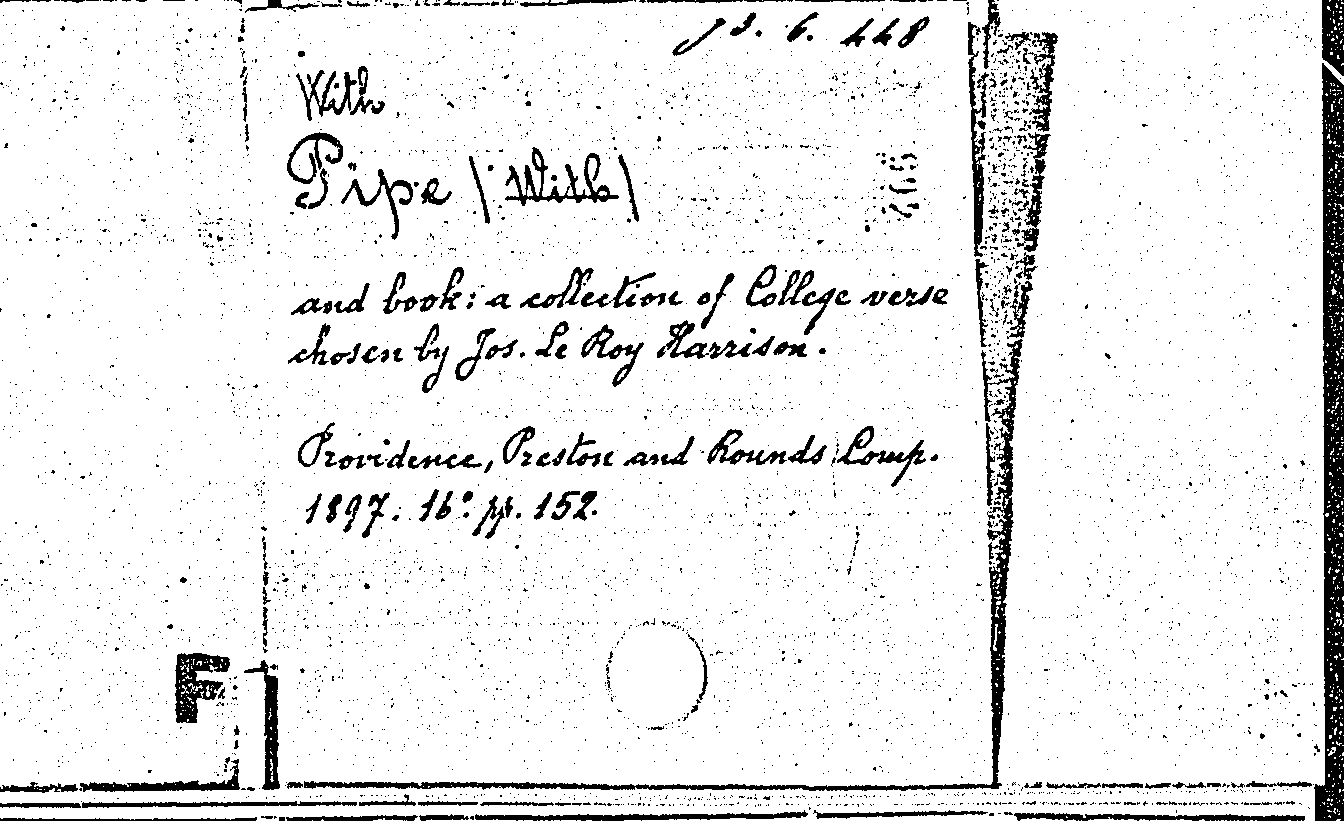 J 3. 6. 448
With
Pipe (With)
and book: a collection of College verse
chosen by Jos. Le Roy Harrison.
Providence, Preston and Rounds Comp.
1897. 16° pp. 152.
F